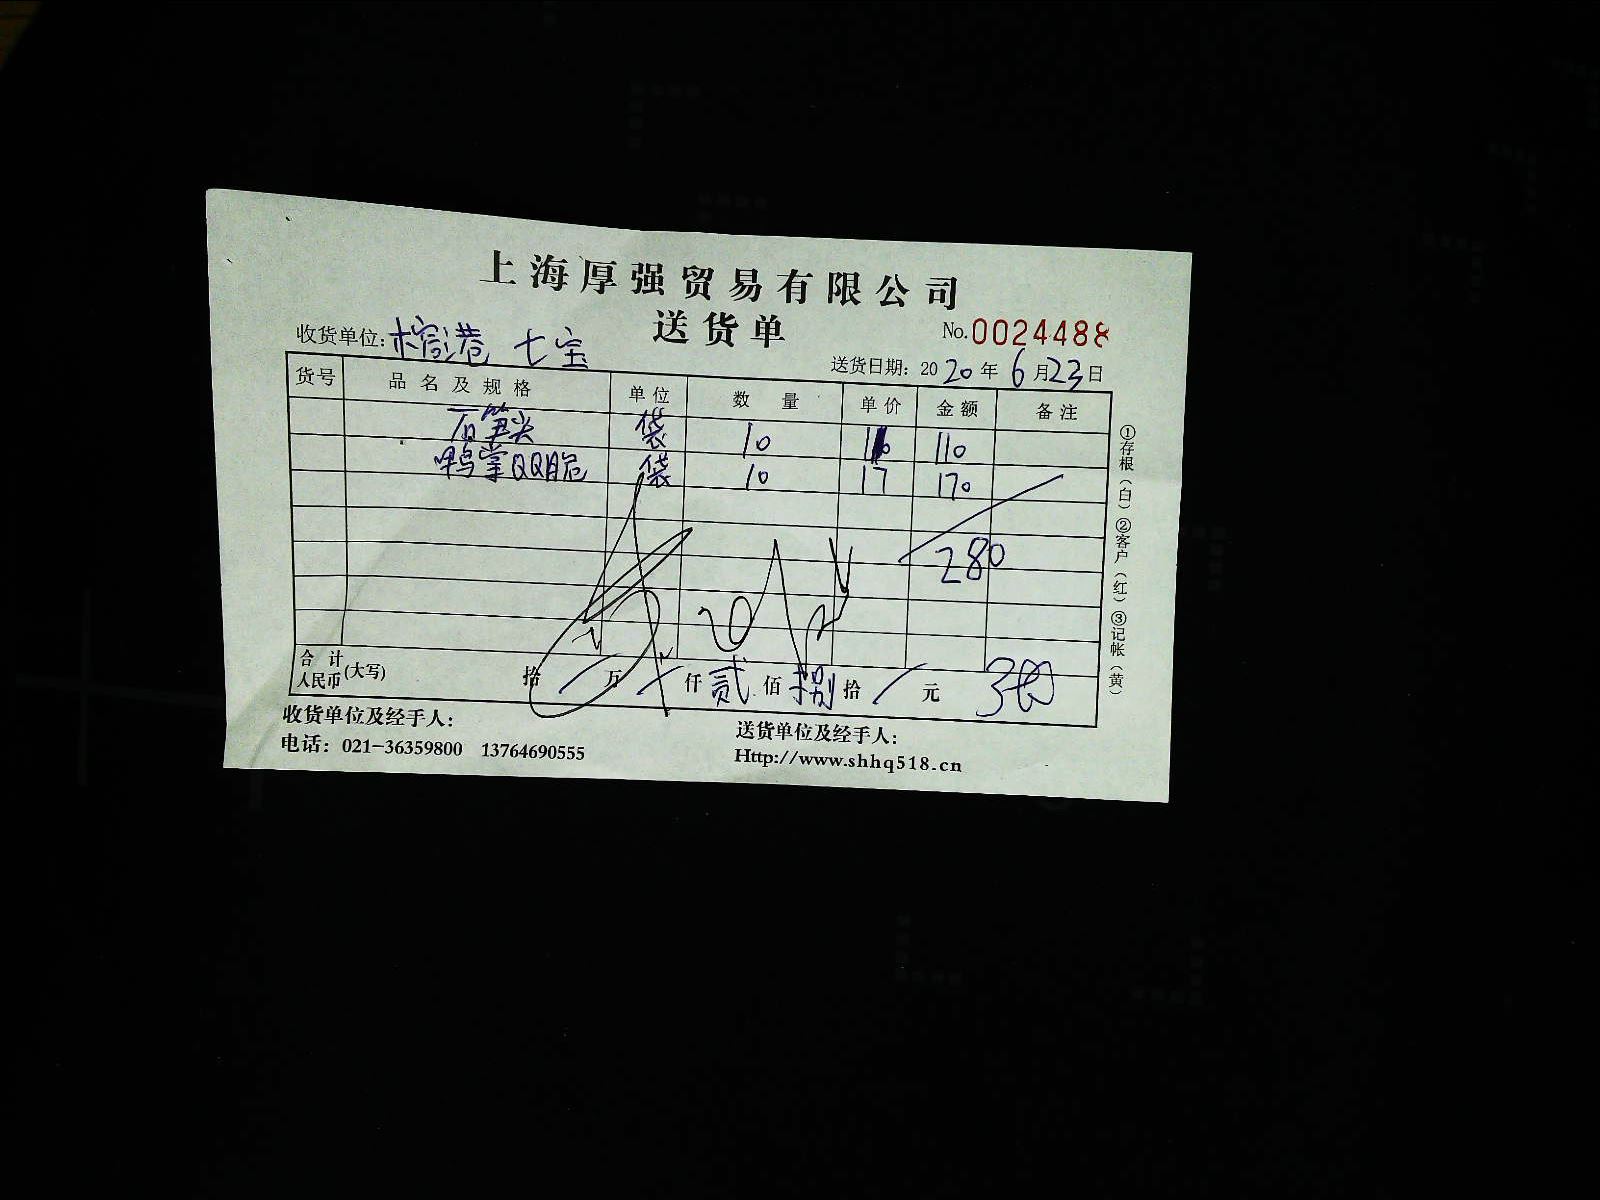 上海厚强贸易有限公司
送货单
No.0024488
收货单位：榕港 七宝
送货日期：2020年6月23日
货号 品名及规格 单位 数量 单价 金额 备注
石笋尖 袋 10 11 110
鸭掌QQ脆 袋 10 17 170
280
合计人民币(大写) 拾 / 万 / 仟 贰 佰 捌 拾 / 元
收货单位及经手人：
送货单位及经手人：
电话：021-36359800 13764690555
Http://www.shhq518.cn
①存根（白）②客户（红）③记帐（黄）